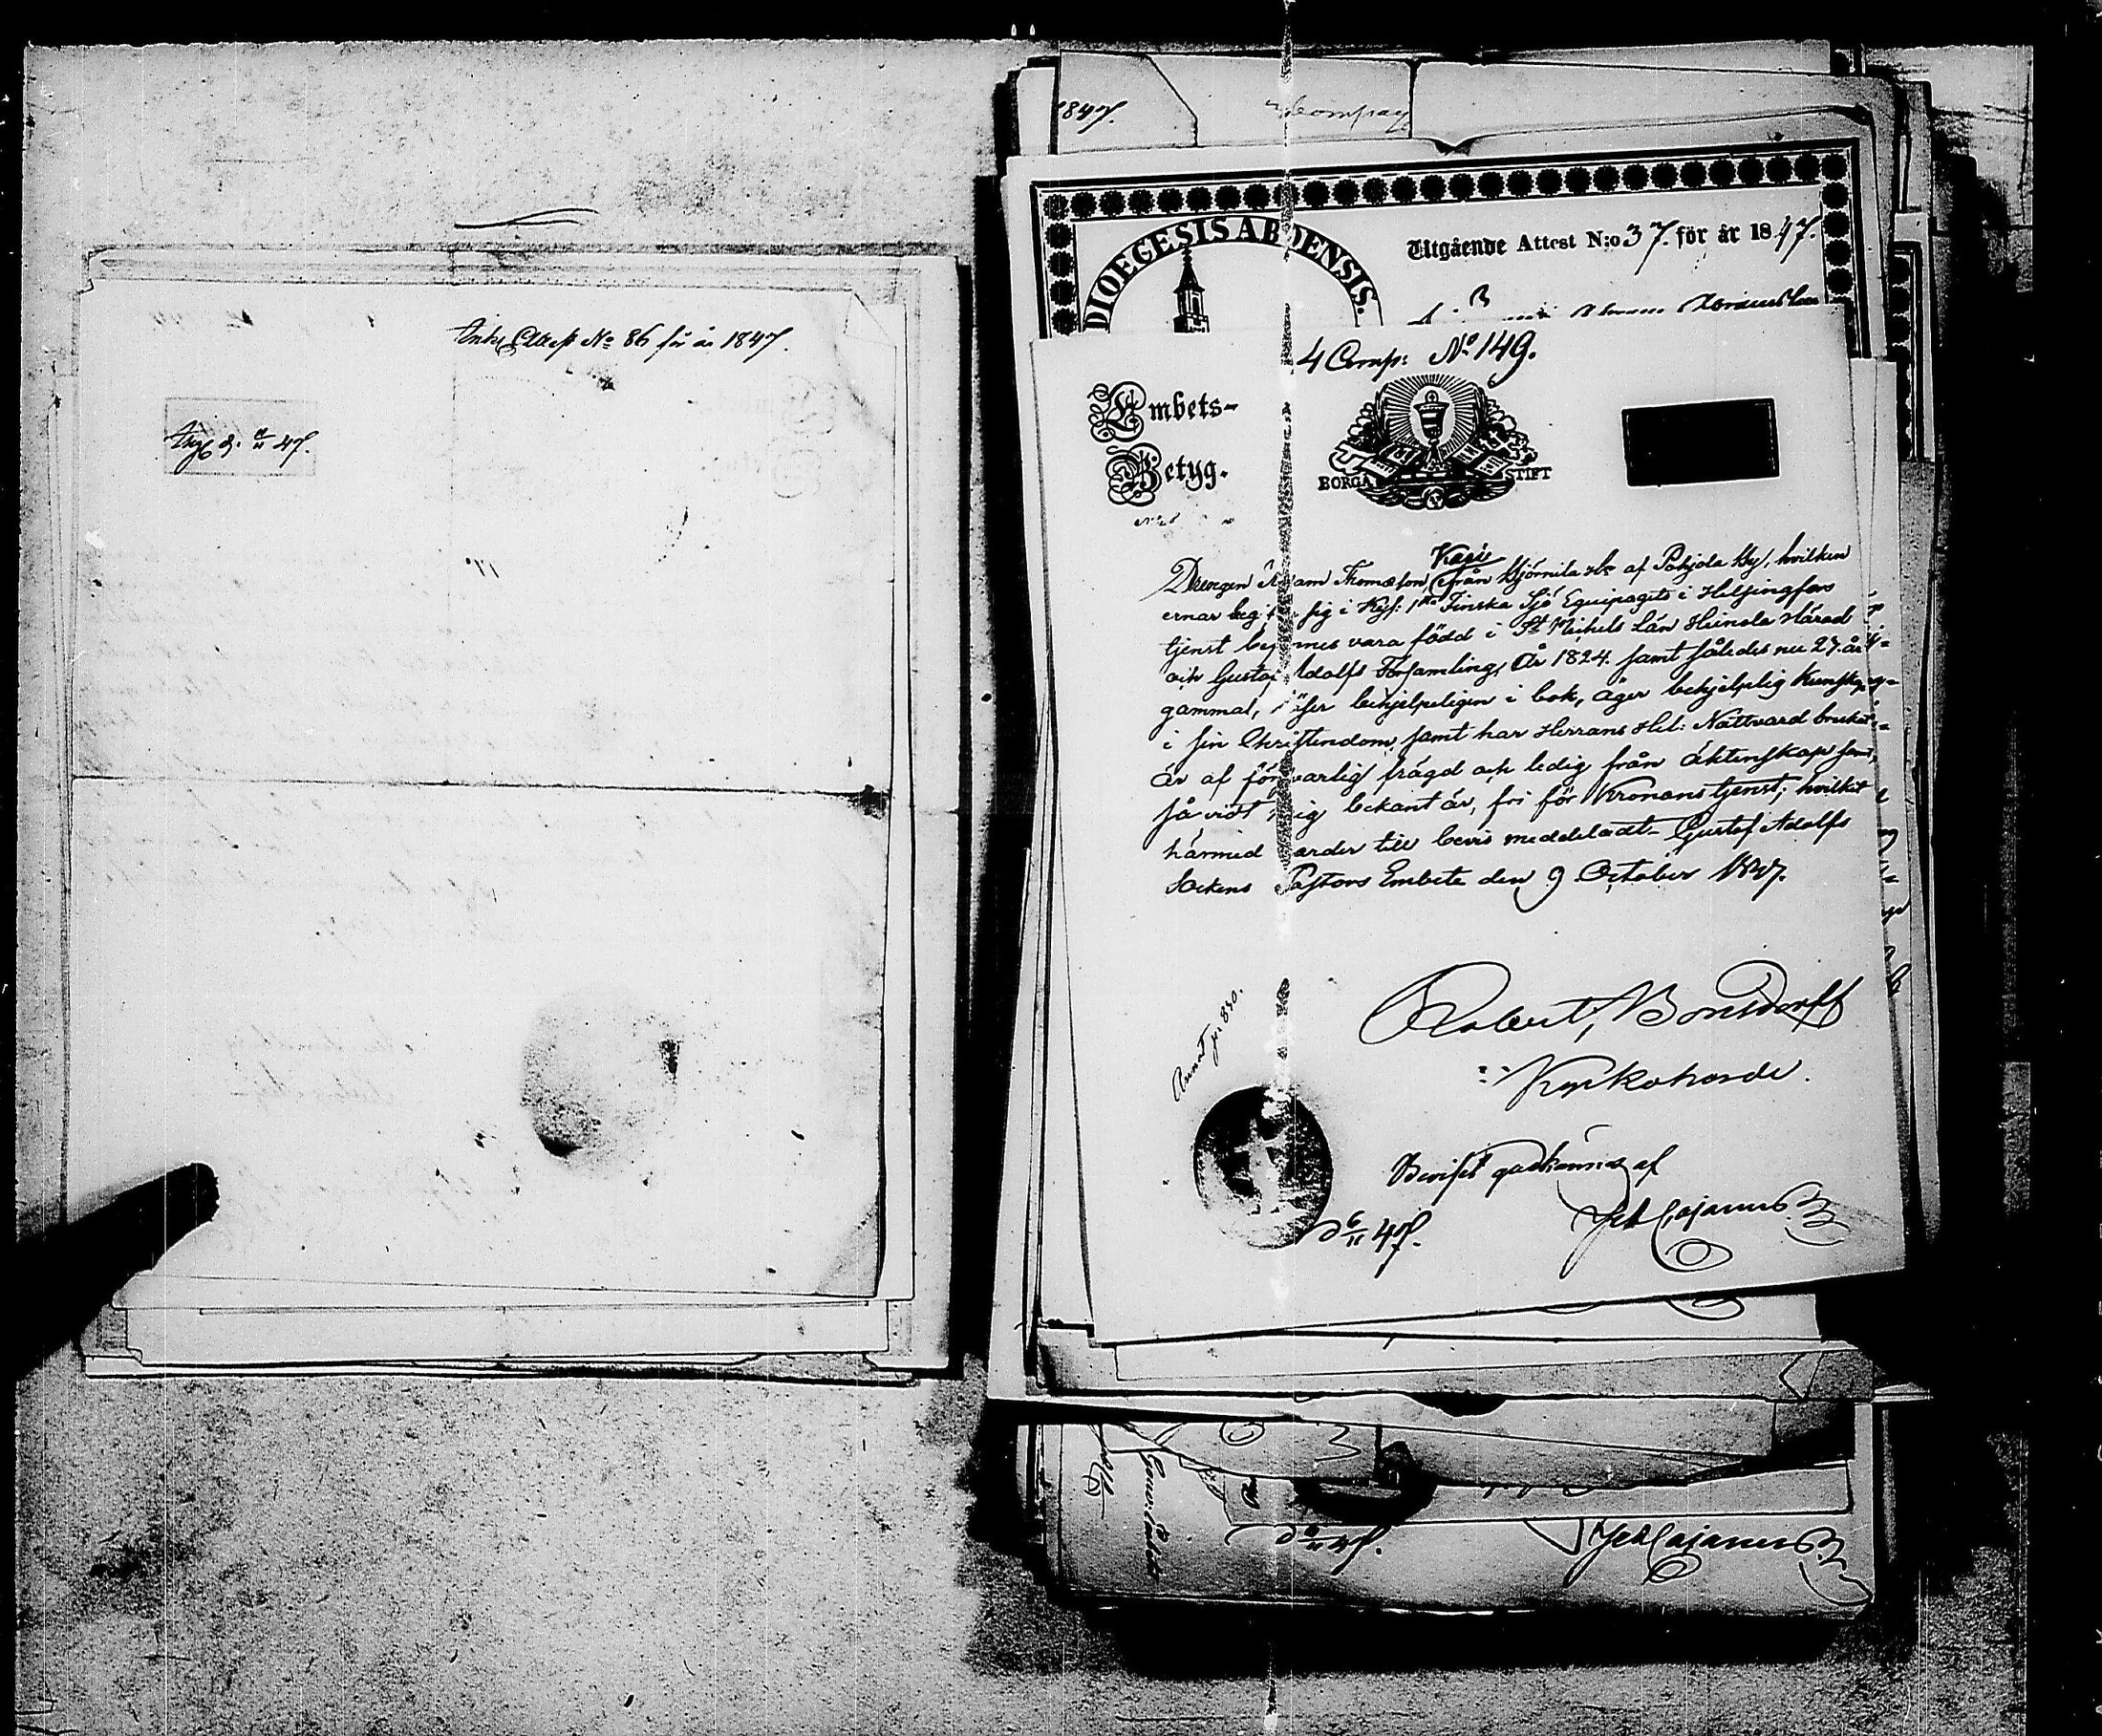 Attest No 86 för år 1847.
47.
1847.
Compag
DIOECESIS ABOENSIS.
Utgående Attest N:o 37. för år 1847.
4 Comp: No 149.
Embets-
Betyg.
BORGÅ STIFT
Kasie
Drengen Adam Thomæson, från Björnila Hn af Pohjola By, hvilken
ernar begifva sig i Kejs: 1sta Finska Sjö Equipagets i Helsingfors
tjenst befinnes vara född i St Michels Län Heinola Härad
och Gustaf Adolfs Församling, År 1824. samt således nu 23. år
gammal, läser behjelpeligen i bok, äger behjelplig kunskap
i sin Christendom, samt har Herrans Hel: Nattvard brukat
är af försvarlig frägd och ledig från äktenskap samt,
så vidt mig bekant är, fri för Kronans tjenst; hvilket
härmed varder till bevis meddeladt. Gustaf Adolfs
Sockens Pastors Embete den 9 October 1847.
Robert Bonsdorff
Kyrkoherde.
Beviset godkännes af
Cajanus
d 6/11 47.
Cajanus